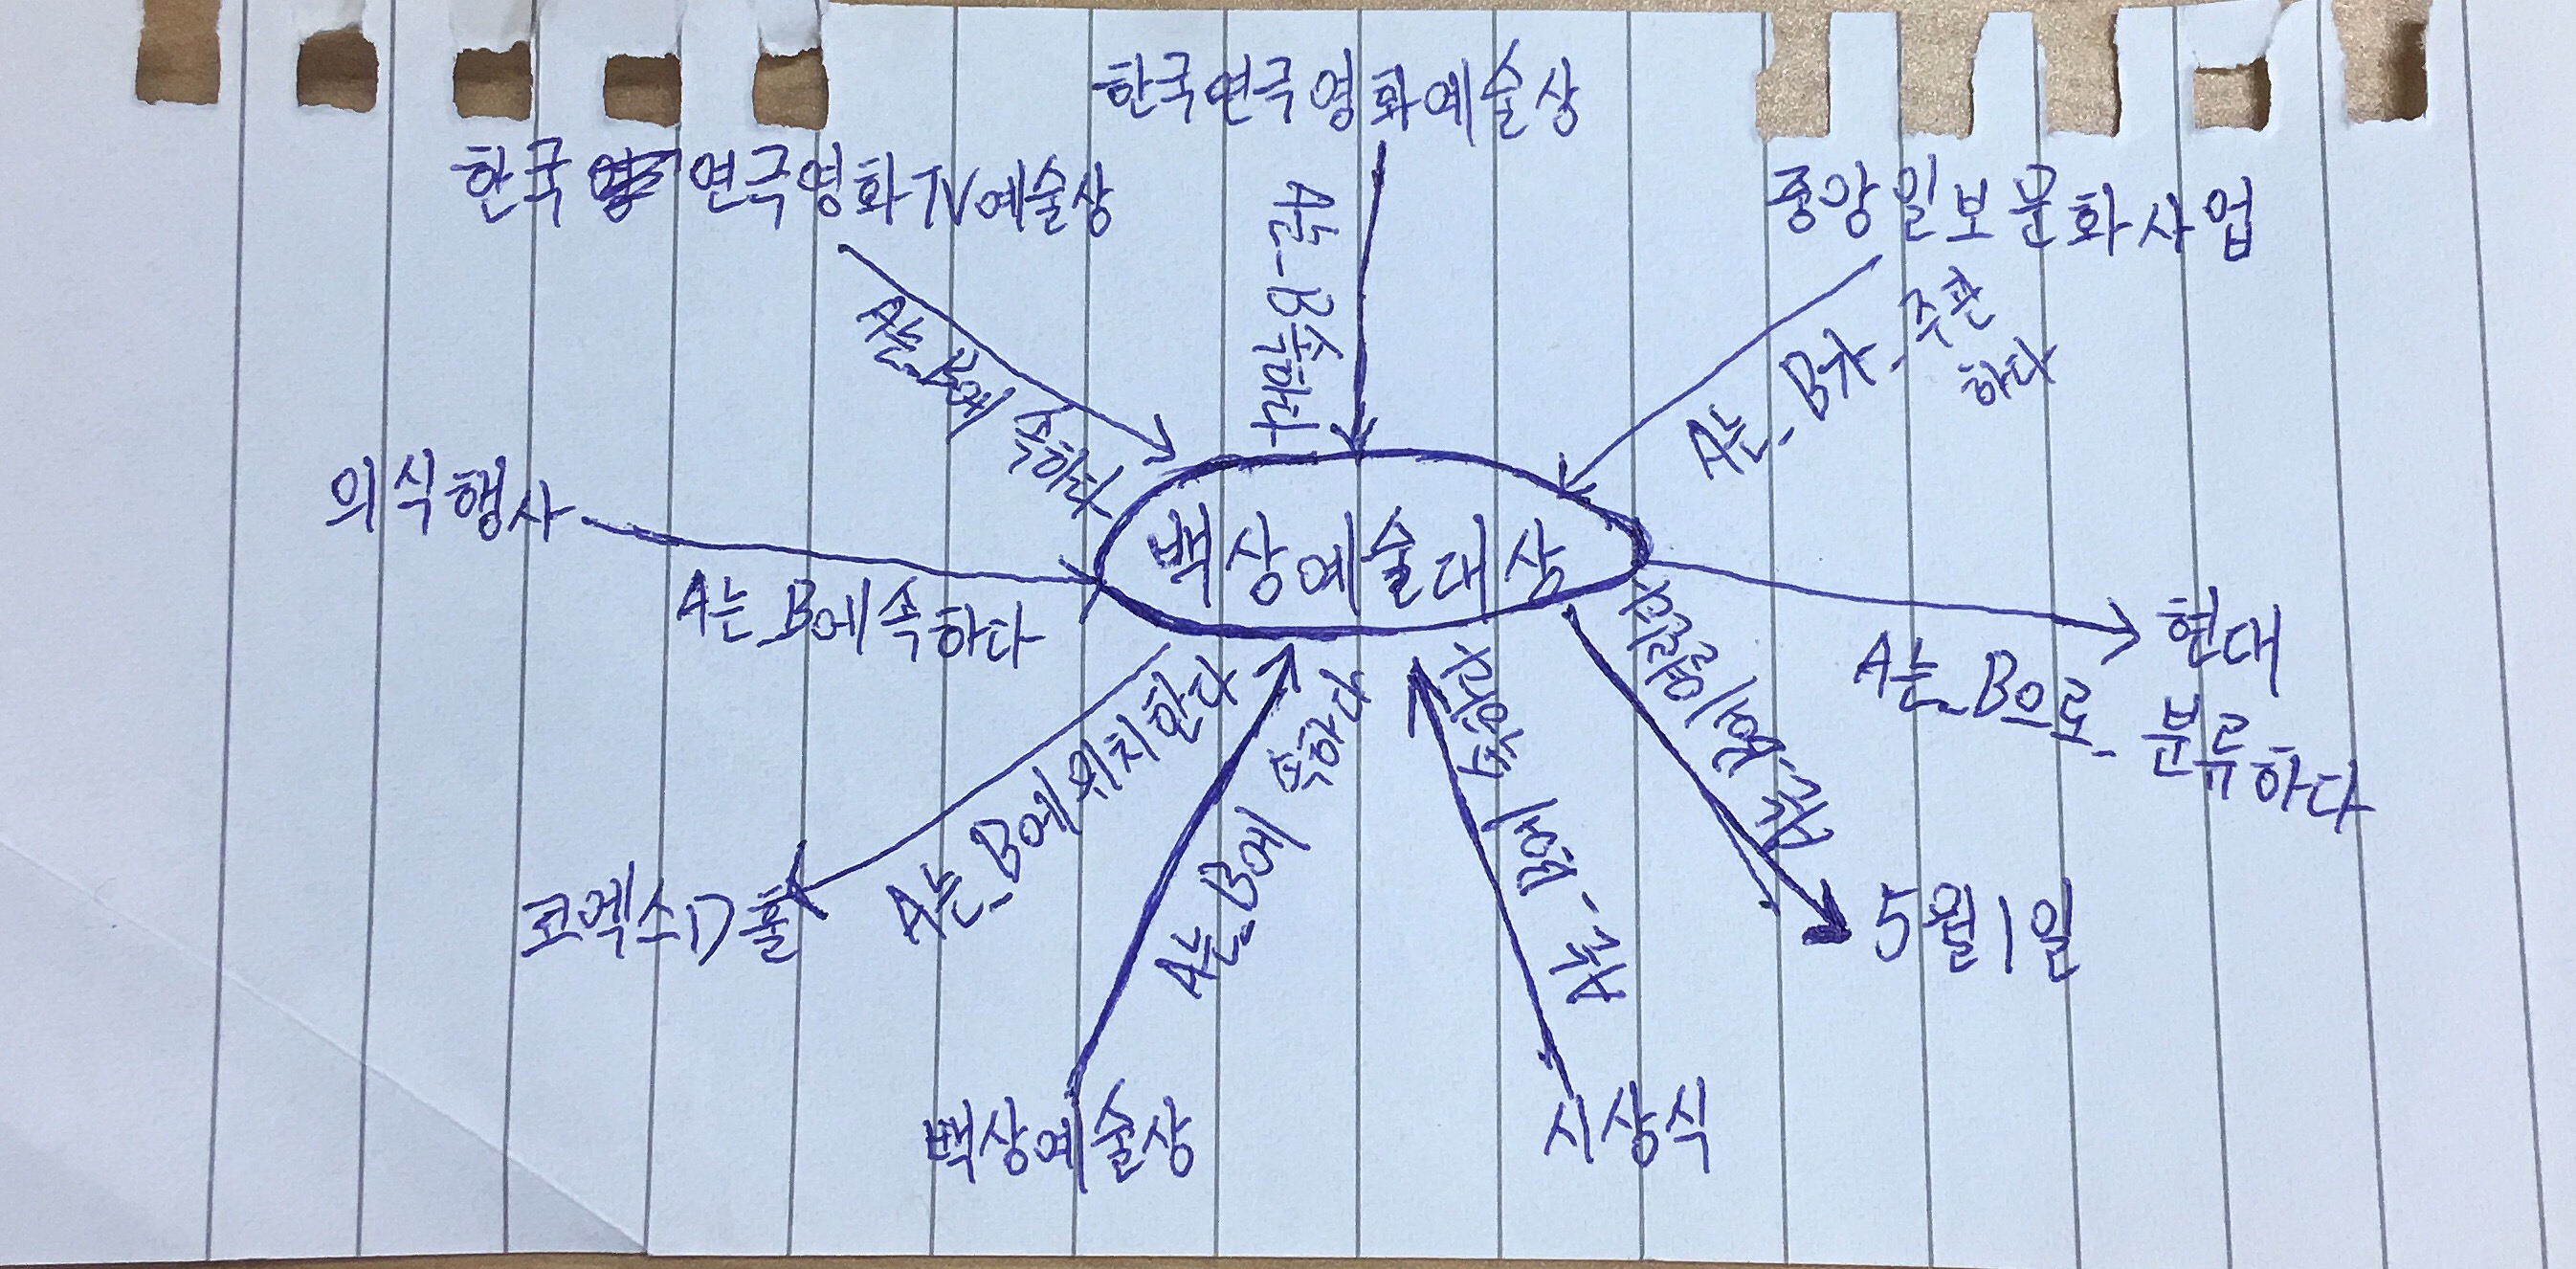 한국연극영화예술상
한국 연극영화TV예술상
중앙일보문화사업
A는_B에 속하다
A는_B
속하다
A는_B가_주관
하다
의식행사
백상예술대상
A는_B에속하다
현대
A는_B으로_분류하다
A는_B에위치한다
A는_B에 속하다
A는_B에 속하다
A는_B에
코엑스D홀
5월1일
백상예술상
시상식